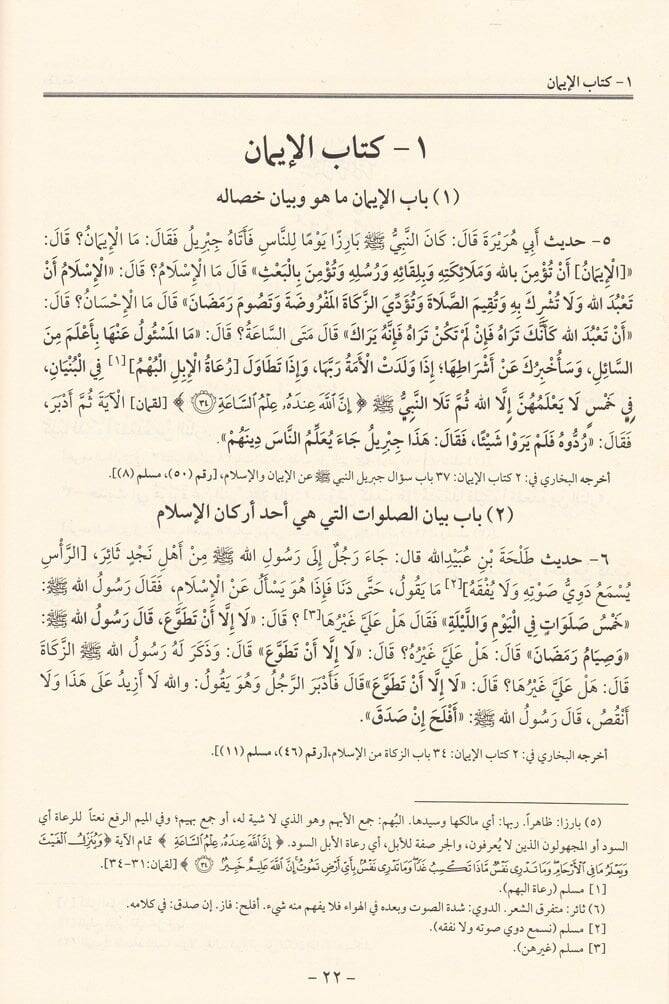 ١- كتاب الإيمان
١- كتاب الإيمان
(١) باب الإيمان ما هو وبيان خصاله
٥- حديث أَبِي هُرَيْرَةَ قَالَ: كَانَ النَّبِيُّ ﷺ بَارِزًا يَوْمًا لِلنَّاسِ فَأَتَاهُ جِبْرِيلُ فَقَالَ: مَا الْإِيمَانُ؟ قَالَ:
«[الْإِيمَانُ] أَنْ تُؤْمِنَ بِالله وَمَلَائِكَتِهِ وَبِلِقَائِهِ وَرُسُلِهِ وَتُؤْمِنَ بِالْبَعْثِ» قَالَ مَا الْإِسْلَامُ؟ قَالَ: «الْإِسْلَامُ أَنْ
تَعْبُدَ الله وَلَا تُشْرِكَ بِهِ وَتُقِيمَ الصَّلَاةَ وَتُؤَدِّيَ الزَّكَاةَ الْمَفْرُوضَةَ وَتَصُومَ رَمَضَانَ» قَالَ مَا الْإِحْسَانُ؟ قَالَ:
«أَنْ تَعْبُدَ الله كَأَنَّكَ تَرَاهُ فَإِنْ لَمْ تَكُنْ تَرَاهُ فَإِنَّهُ يَرَاكَ» قَالَ مَتَى السَّاعَةُ؟ قَالَ: «مَا الْمَسْئُولُ عَنْهَا بِأَعْلَمَ مِنَ
السَّائِلِ، وَسَأُخْبِرُكَ عَنْ أَشْرَاطِهَا؛ إِذَا وَلَدَتْ الْأَمَةُ رَبَّهَا، وَإِذَا تَطَاوَلَ [رُعَاةُ الْإِبِلِ الْبُهْمُ][١] فِي الْبُنْيَانِ،
فِي خَمْسٍ لَا يَعْلَمُهُنَّ إِلَّا الله ثُمَّ تَلَا النَّبِيُّ ﷺ ﴿ إِنَّ ٱللَّهَ عِندَهُۥ عِلْمُ ٱلسَّاعَةِ ۝٣٤ ﴾ [لقمان] الْآيَةَ ثُمَّ أَدْبَرَ،
فَقَالَ: «رُدُّوهُ فَلَمْ يَرَوْا شَيْئًا، فَقَالَ: هَذَا جِبْرِيلُ جَاءَ يُعَلِّمُ النَّاسَ دِينَهُمْ».
أخرجه البخاري في: ٢ كتاب الإيمان: ٣٧ باب سؤال جبريل النبي ﷺ عن الإيمان والإسلام، [رقم (٥٠)، مسلم (٨)].
(٢) باب بيان الصلوات التي هي أحد أركان الإسلام
٦- حديث طَلْحَةَ بْنِ عُبَيْدِالله قال: جَاءَ رَجُلٌ إِلَى رَسُولِ الله ﷺ مِنْ أَهْلِ نَجْدٍ ثَائِرَ، [الرَّأْسِ
يُسْمَعُ دَوِيُّ صَوْتِهِ وَلَا يُفْقَهُ][٢] مَا يَقُولُ، حَتَّى دَنَا فَإِذَا هُوَ يَسْأَلُ عَنْ الْإِسْلَامِ، فَقَالَ رَسُولُ الله ﷺ:
«خَمْسُ صَلَوَاتٍ فِي الْيَوْمِ وَاللَّيْلَةِ» فَقَالَ هَلْ عَلَيَّ غَيْرُهَا[٣] ؟ قَالَ: «لَا إِلَّا أَنْ تَطَوَّعَ، قَالَ رَسُولُ الله ﷺ:
«وَصِيَامُ رَمَضَانَ» قَالَ: هَلْ عَلَيَّ غَيْرُهُ؟ قَالَ: «لَا إِلَّا أَنْ تَطَوَّعَ» قَالَ: وَذَكَرَ لَهُ رَسُولُ الله ﷺ الزَّكَاةَ
قَالَ: هَلْ عَلَيَّ غَيْرُهَا؟ قَالَ: «لَا إِلَّا أَنْ تَطَوَّعَ»قَالَ فَأَدْبَرَ الرَّجُلُ وَهُوَ يَقُولُ: والله لَا أَزِيدُ عَلَى هَذَا وَلَا
أَنْقُصُ، قَالَ رَسُولُ الله ﷺ: «أَفْلَحَ إِنْ صَدَقَ».
أخرجه البخاري في: ٢ كتاب الإيمان: ٣٤ باب الزكاة من الإسلام،[رقم (٤٦)، مسلم (١١)].
(٥) بارزا: ظاهراً. ربها: أي مالكها وسيدها. البُهم: جمع الأبهم وهو الذي لا شية له، أو جمع بهيم؛ وفي الميم الرفع نعتاً للرعاة أي
السود أو المجهولون الذين لا يُعرفون، والجر صفة للأبل، أي رعاة الأبل السود. ﴿ إِنَّ ٱللَّهَ عِندَهُۥ عِلْمُ ٱلسَّاعَةِ ﴾ تمام الآية ﴿وَيُنَزِّلُ ٱلْغَيْثَ
وَيَعْلَمُ مَا فِى ٱلْأَرْحَامِ وَمَا تَدْرِى نَفْسٌ مَّاذَا تَكْسِبُ غَدًا وَمَا تَدْرِى نَفْسٌۢ بِأَىِّ أَرْضٍ تَمُوتُ إِنَّ ٱللَّهَ عَلِيمٌ خَبِيرٌۢ ۝٣٤ ﴾ [لقمان:٣١-٣٤].
[١] مسلم (رعاة البهم).
(٦) ثائر: متفرق الشعر. الدوي: شدة الصوت وبعده في الهواء فلا يفهم منه شيء. أفلح: فاز. إن صدق: في كلامه.
[٢] مسلم (نسمع دوي صوته ولا نفقه).
[٣] مسلم (غيرهن).
- ٢٢ -